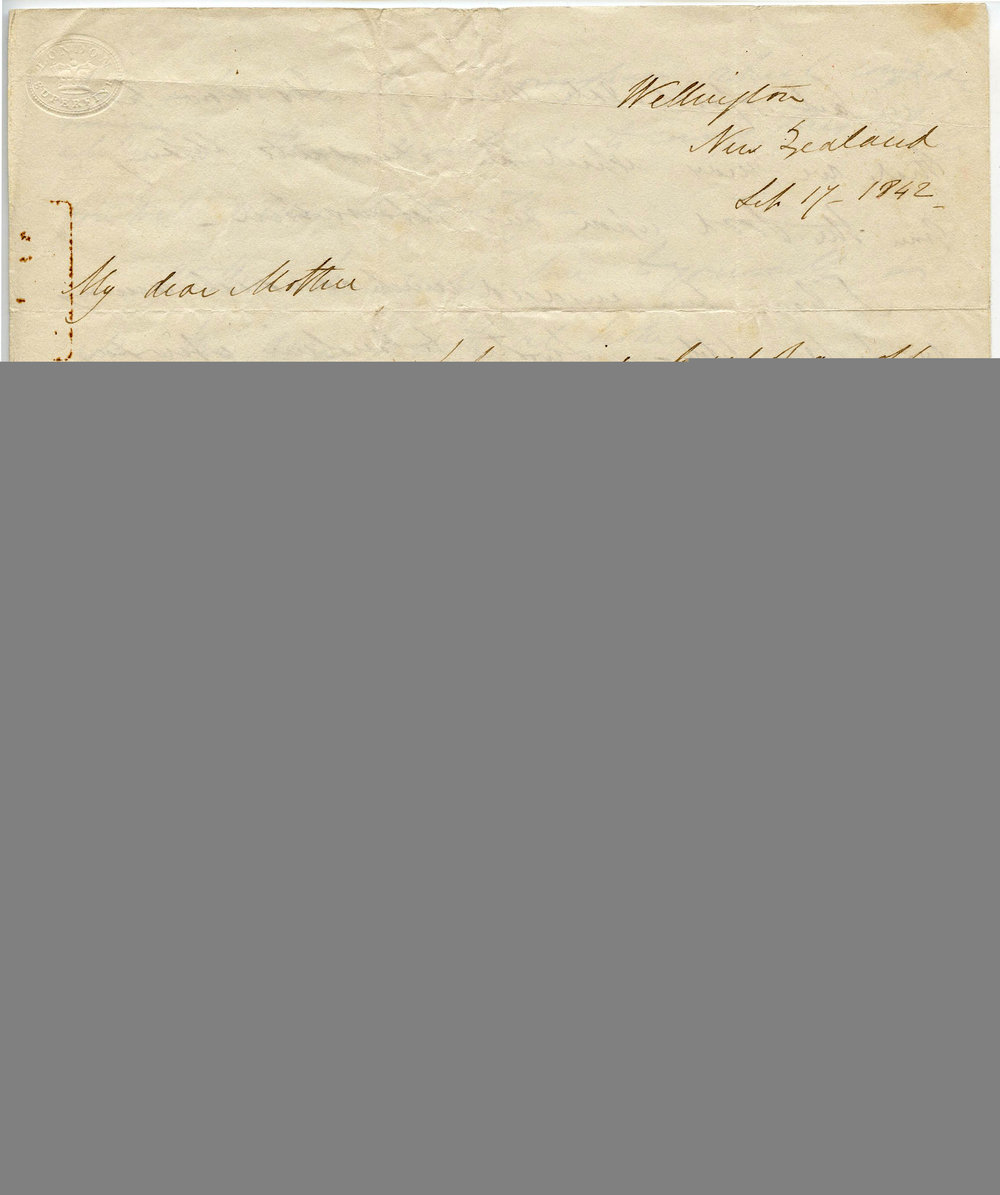 LONDON
SUPERFINE
Wellington
New Zealand
Sep 17 - 1842 -
My dear Mother